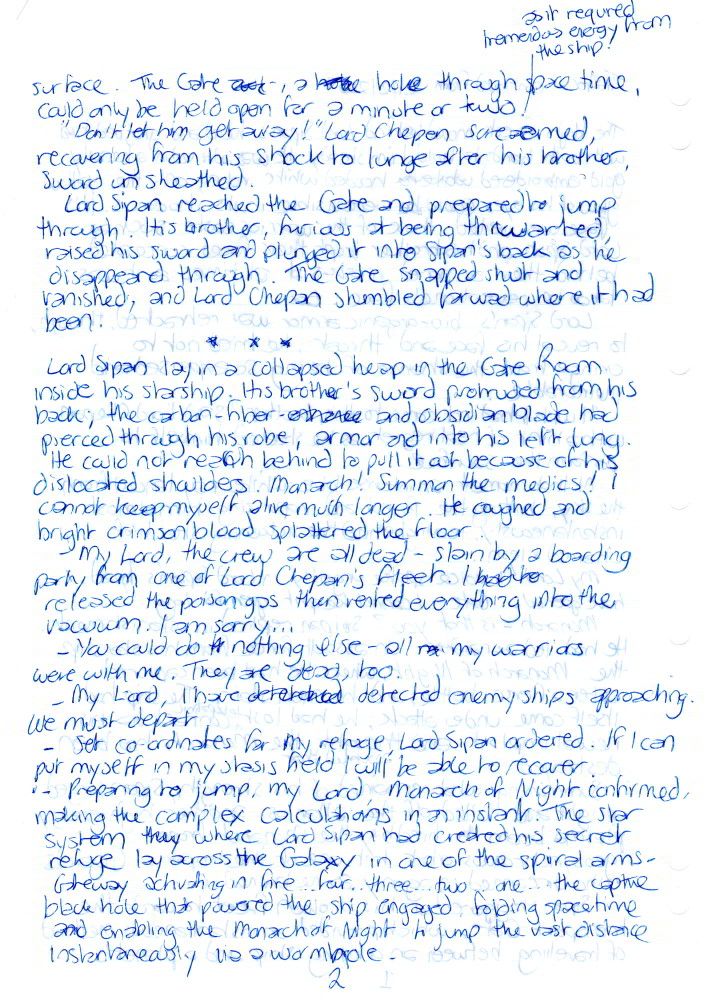 as it required
tremendous energy from
the ship.
surface. The Gate, a hole through spacetime,
could only be held open for a minute or two.
"Don't let him get away!" Lord Chepan screamed,
recovering from his shock to lunge after his brother,
sword unsheathed.
Lord Sipan reached the Gate and prepared to jump
through. His brother, furious at being thwarted,
raised his sword and plunged it into Sipan's back as he
disappeard through. The Gate snapped shut and
vanished, and Lord Chepan stumbled forward where it had
been.
* * *
Lord Sipan lay in a collapsed heap in the Gate Room
inside his starship. His brother's sword protruded from his
back; the carbon-fiber and obsidian blade had
pierced through his robe, armor and into his left lung.
He could not reach behind to pull it out because of his
dislocated shoulders. Monarch! Summon the medics! I
cannot keep myself alive much longer. He coughed and
bright crimson blood splattered the floor.
- My Lord, the crew are all dead - slain by a boarding
party from one of Lord Chepan's fleet. I
released the poison gas then vented everything into the
vacuum. I am sorry...
- You could do nothing else - all my warriors
were with me. They are dead, too.
- My Lord, I have detected enemy ships approaching.
We must depart
- Set co-ordinates for my refuge, Lord Sipan ordered. If I can
put myself in my stasis field I will be able to recover.
- Preparing to jump, my Lord Monarch of Night confirmed,
making the complex calculations in an instant. The star
system where Lord Sipan had created his secret
refuge lay across the Galaxy in one of the spiral arms -
Gateway activating in five...four...three...two...one... the captive
black hole that powered the ship engaged, folding spacetime
and enabling the Monarch of Night to jump the vast distance
instantaneously via a wormhole -
2